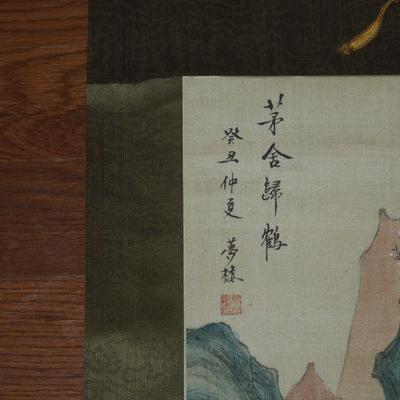 茅舍歸鶴
癸丑仲夏 夢樓